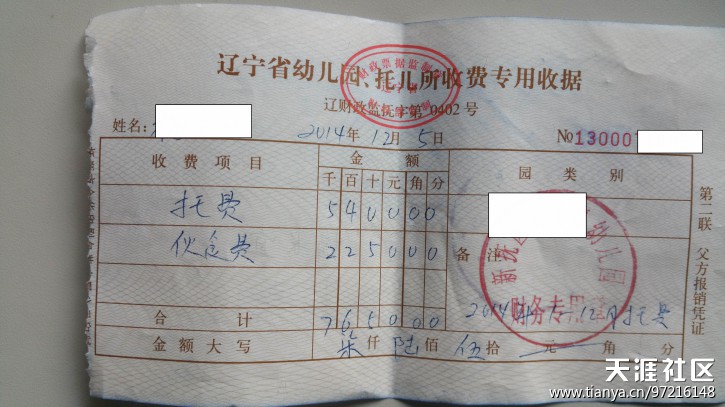 辽宁省幼儿园、托儿所收费专用收据
辽财政监抚字第0402号
姓名:
2014年12月5日 №13000
收费项目 金额 园类别
千百十元角分
托费 540000
伙食费 225000
备注
合计 765000
2014年 12月托费
金额大写 柒仟陆佰伍拾 元 角 分
第二联 父方报销凭证
财务专用章
幼儿园
天涯社区
www.tianya.cn/97216148